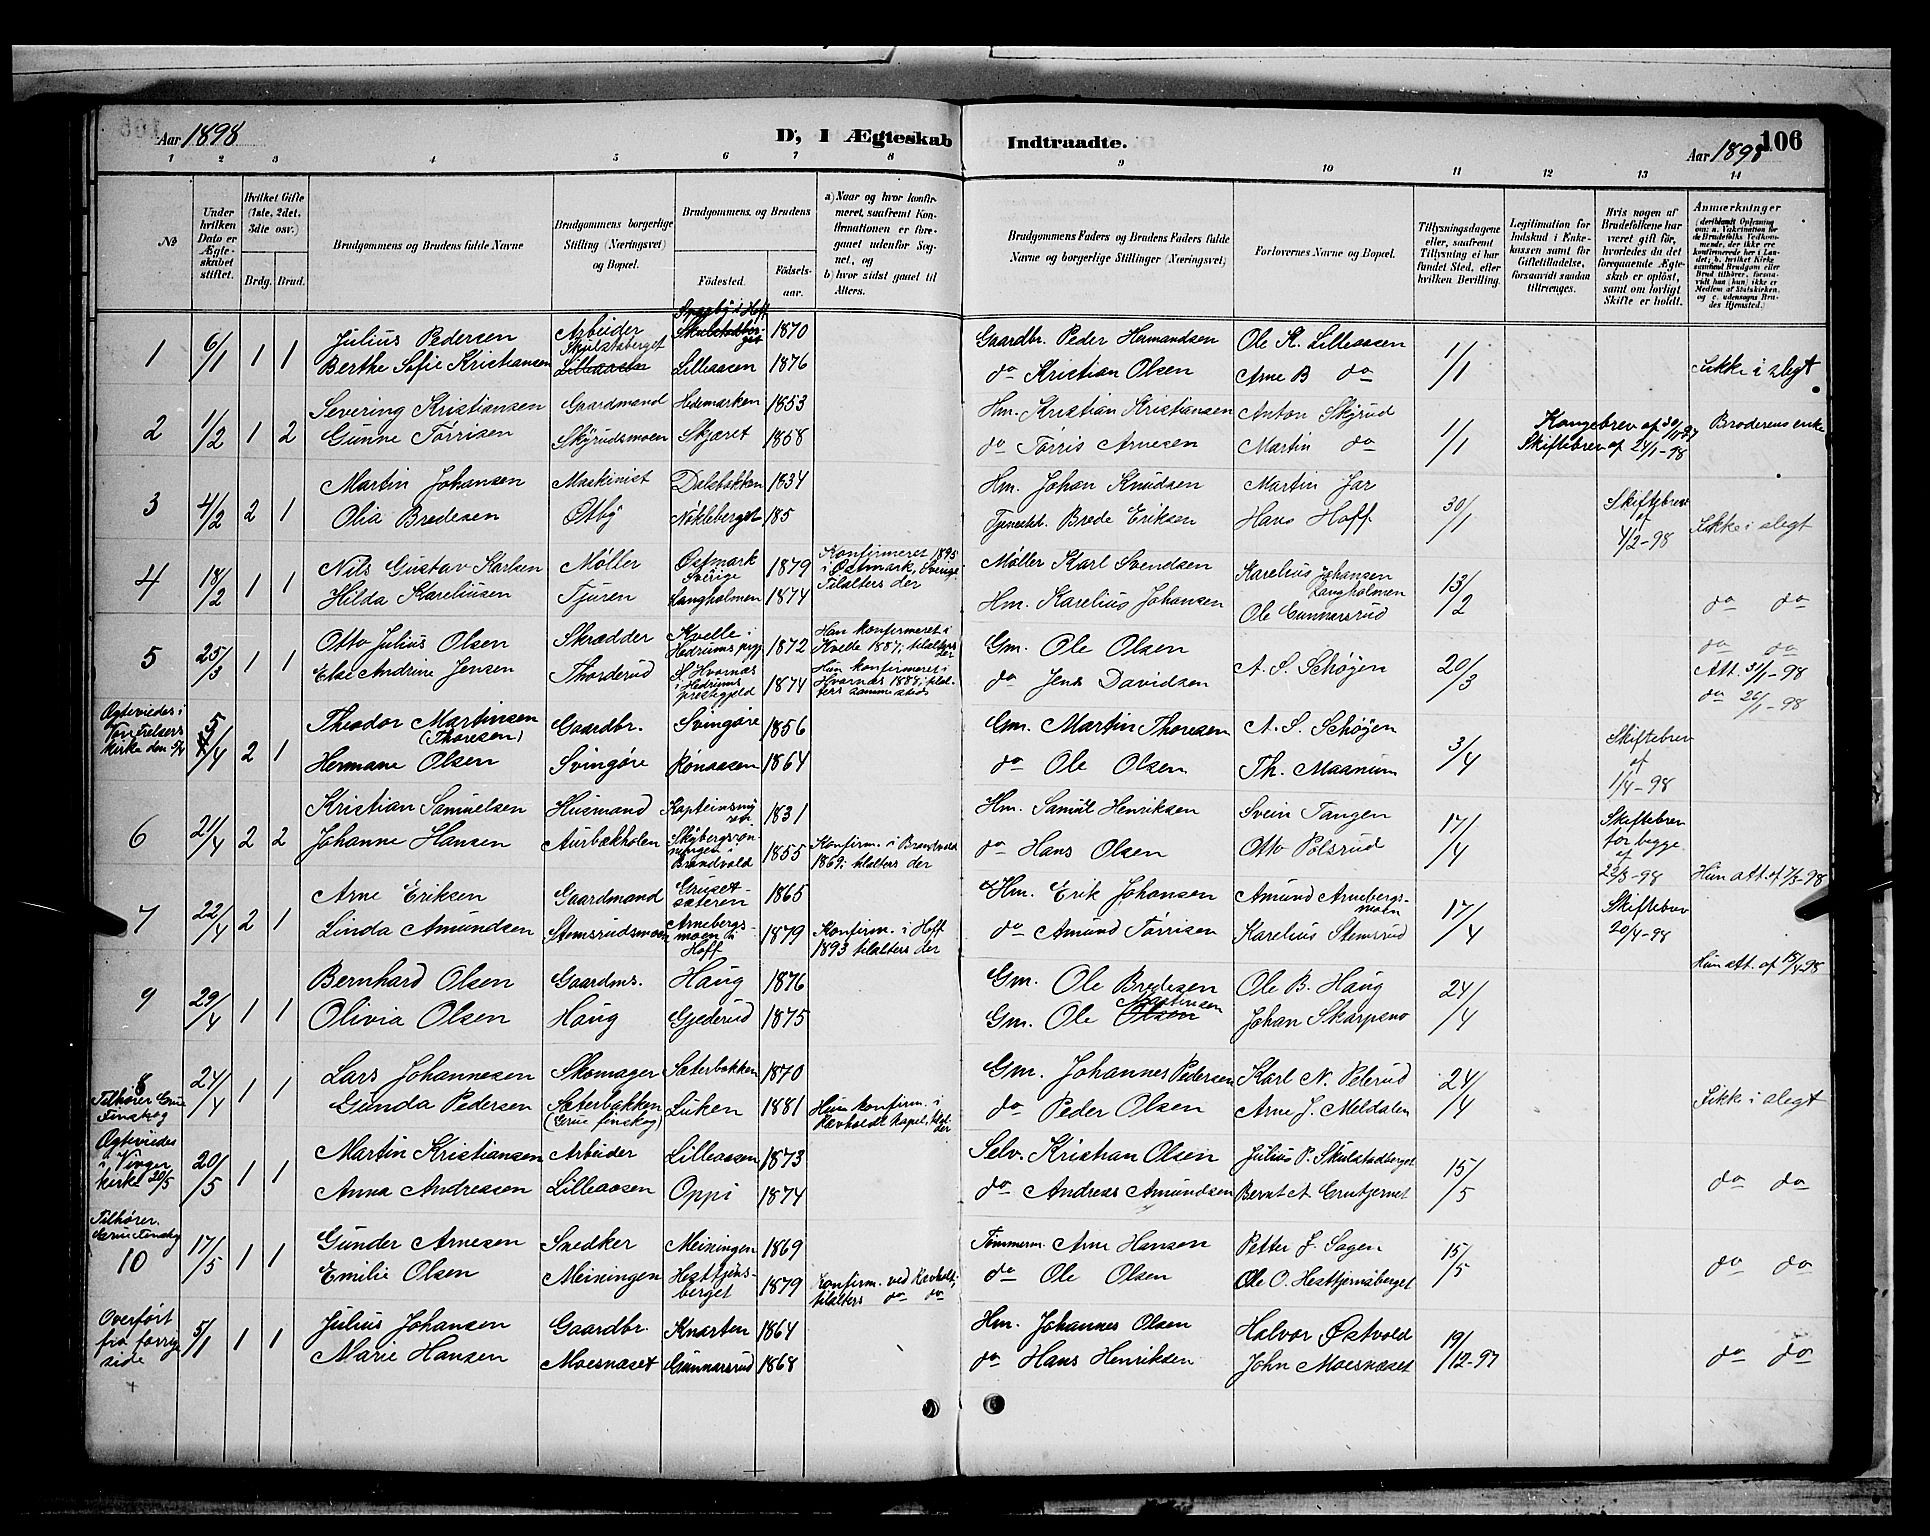 Aar 1898
D, I Ægteskab
Indtraadte.
Aar 1898
106
1 2 3 4 5 6 7 8 9 10 11 12 13 14
№
Under hvilken Dato er Ægteskabet stiftet.
Hvilket Gifte (1ste, 2det, 3die osv.)
Brdg. Brud.
Brudgommens og Brudens fulde Navne
Brudgommens borgerlige Stilling (Næringsvei) og Bopæl.
Brudgommens og Brudens
Fødested.
Fødselsaar.
a) Naar og hvor konfirmeret, saafremt Konfirmationen er foregaaet udenfor Sognet, og
b) hvor sidst gaaet til Alters.
Brudgommens Faders og Brudens Faders fulde Navne og borgerlige Stillinger (Næringsvei)
Forlovernes Navne og Bopæl.
Tillysningsdagene eller, saafremt Tillysning ei har fundet Sted, efter hvilken Bevilling.
Legitimation for Indskud i Enkekassen samt for Giftetilladelse, forsaavidt saadan tiltrænges.
Hvis nogen af Brudefolkene har været gift før, hvorledes da det foregaaende Ægteskab er opløst, samt om lovligt Skifte er holdt.
Anmærkninger
1 6/1 1 1 Julius Pedersen Arbeider Skulstaberget 1870 Gaardbr. Peder Hermandsen Ole K. Lilleaasen 1/1
Berthe Sofie Kristiansen Lilleaasen Lilleaasen 1876 do Kristian Olsen Arne B do Ikke i slegt
2 1/2 1 2 Severing Kristiansen Gaardmand Hedemarken 1853 Hm. Kristian Kristiansen Anton Skyrud 1/1 Kongebrev af 30/11-97 Broderens enke
Gunne Tørrisen Skyrudsmoen Skjæret 1858 do Tørris Arnesen Martin do Skiftebrev af 24/1-98
3 4/2 2 1 Martin Johansen Maskinist Dalsbakken 1834 Hm. Johan Knudsen Martin Jar 30/1 Skiftebrev af 4/2-98
Olia Bredesen Otby Nökleberget 185 Tjenestk. Brede Eriksen Hans Hoff Ikke i slegt
4 18/2 1 1 Nils Gustav Karlsen Møller Østmark Sverige 1879 Konfirmeret 1895 i Østmark, Sverige. Tilalters der Møller Karl Svendsen Karelius Johansen Langholmen 13/2
Hilda Kareliusen Tjuren Langholmen 1874 Hm. Karelius Johansen Ole Gunnarsrud do do
5 25/3 1 1 Otto Julius Olsen Skrædder Kvelle i Hedrums prgj 1872 Han konfirmeret i Kvelle 1887, tilalters der Gm. Ole Olsen A. S. Schøyen 20/3 do do
Else Andrine Jensen Thorderud Hvarnæs i Hedrums prestegjeld 1874 Hun konfirmeret i Hvarnæs 1889, tilalters sammesteds do Jens Davidsen Att. 31/1-98
do 26/1-98
Ogteviedes i kirke den 5/4 5/4 2 1 Theodor Martinsen (Thoresen) Gaardbr. Svingøre 1856 Gm. Martin Thoresen A. S. Schøyen 3/4 Skiftebrev af 1/4-98
Hermane Olsen Svingøre Rønaasen 1864 do Ole Olsen Th. Maanum
6 21/4 2 2 Kristian Samuelsen Husmand Kapteinsmyren 1831 Hm. Samuel Henriksen Svein Tangen 17/4 Skiftebrev for begge af 22/3-98
Johanne Hansen Aurbækholen Brandvold 1855 Konfirm. i Brandvold 1869, tilalters der do Hans Olsen Otto Polsrud
7 22/4 2 1 Arne Eriksen Gaardmand Grusetsæteren 1865 Hm. Erik Johansen Amund Arnebergsmoen 17/4 Skiftebrev 20/4-98 Hun att. af 7/3-98
Linda Amundsen Stemsrudsmoen Arnebergsmoen i Hoff 1879 Konfirm. i Hoff 1893 tilalters der do Amund Tørrisen Karelius Stemsrud
9 29/4 1 1 Bernhard Olsen Gaardms. Haug 1876 Gm. Ole Bredesen Ole B. Haug 24/4
Olivia Olsen Haug Gjederud 1875 Gm. Ole Martinsen Johan Skarpsno
8 Tilhører Grue Finskog 24/4 1 1 Lars Johannesen Skomager Sæterbakken 1870 Gm. Johannes Pedersen Karl N. Peterud 24/4
Gunda Pedersen Sæterbakken (Grue finskog) Luken 1881 Hun konfirm. i Rævholdt kapel, tilal. der do Peder Olsen Arne J. Meldalen Ikke i slegt
Ogteviedes i Vinger kirke 20/5 20/5 1 1 Martin Kristiansen Arbeider Lilleaasen 1873 Selv. Kristian Olsen Julius P. Skulstadberget 15/5
Anna Andreasen Lilleaasen Oppi 1874 do Andreas Amundsen Bernt A Gruetjernet do do
Tilhører Grue Finskog
10 17/5 1 1 Gunder Arnesen Snedker Meiningen 1869 Tømmerm. Arne Hansen Petter J. Sagen 15/5
Emilie Olsen Meiningen Hesttjernsberget 1879 Konfirm. ved Rævholdt, tilalters do do do Ole Olsen Ole O. Hesttjernsberget do do
Overført fra forrige side 5/1 1 1 Julius Johansen Gaardbr. Knarten 1864 Hm. Johannes Olsen Halvor Østvold 19/12-97
Marie Hansen Moesnæset Gunnarsrud 1868 do Hans Henriksen John Moesnæset do do